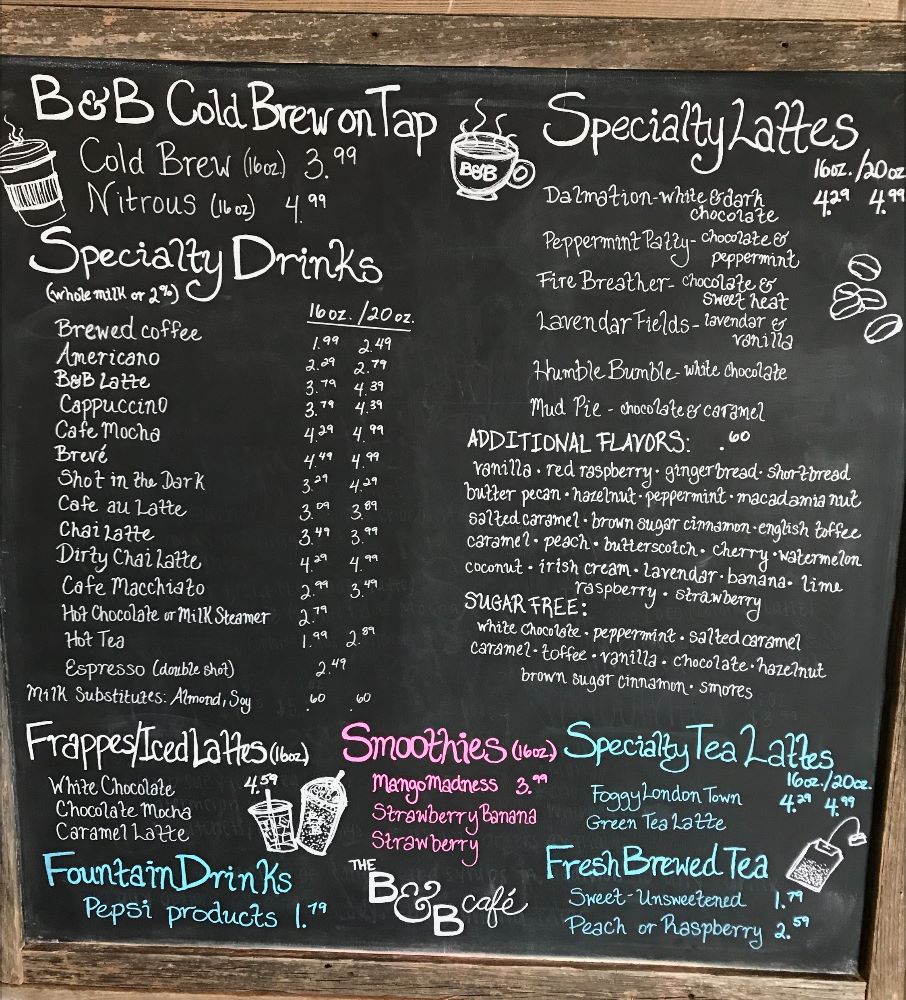 B&B Cold Brew on Tap
Cold Brew (16oz) 3.99
Nitrous (16oz) 4.99
Specialty Drinks
(whole milk or 2%)
16oz. / 20oz.
Brewed coffee 1.99 2.49
Americano 2.29 2.79
B&B Latte 3.79 4.39
Cappuccino 3.79 4.39
Cafe Mocha 4.29 4.99
Brevé 4.49 4.99
Shot in the Dark 3.29 4.29
Cafe au Latte 3.09 3.89
Chai Latte 3.49 3.99
Dirty Chai Latte 4.29 4.99
Cafe Macchiato 2.99 3.49
Hot Chocolate or Milk Steamer 2.79
Hot Tea 1.99 2.89
Espresso (double shot) 2.49
Milk Substitutes: Almond, Soy .60 .60
B&B
Specialty Lattes
16oz. / 20oz
Dalmation-white & dark 4.29 4.99
chocolate
Peppermint Patty- chocolate &
peppermint
Fire Breather- chocolate &
sweet heat
Lavendar Fields- lavendar &
vanilla
Humble Bumble- white chocolate
Mud Pie - chocolate & caramel
ADDITIONAL FLAVORS: .60
vanilla • red raspberry • gingerbread • shortbread
butter pecan • hazelnut • peppermint • macadamia nut
salted caramel • brown sugar cinnamon • english toffee
caramel • peach • butterscotch • cherry • watermelon
coconut • irish cream • lavendar • banana • lime
raspberry • strawberry
SUGAR FREE:
white chocolate • peppermint • salted caramel
caramel • toffee • vanilla • chocolate • hazelnut
brown sugar cinnamon • smores
Frappes/Iced Lattes (16oz)
White Chocolate 4.59
Chocolate Mocha
Caramel Latte
Smoothies (16oz)
Mango Madness 3.99
Strawberry Banana
Strawberry
Specialty Tea Lattes
16oz. / 20oz.
Foggy London Town 4.29 4.99
Green Tea Latte
Fountain Drinks
Pepsi products 1.79
THE
B&B café
Fresh Brewed Tea
Sweet-Unsweetened 1.79
Peach or Raspberry 2.59